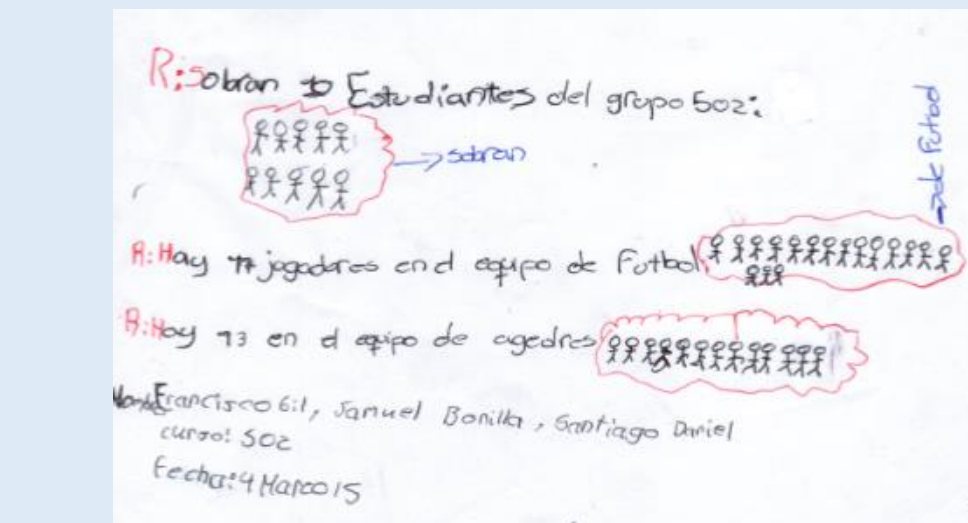 R: Sobran 10 Estudiantes del grupo 502:
→ sobran
→ de Futbol
R: Hay 17 jogadores en el equipo de Futbol.
R: Hay 13 en el equipo de agedres
Nombre Francisco Gil, Samuel Bonilla, Santiago Daniel
curso: 502
Fecha: 4 Marco 15